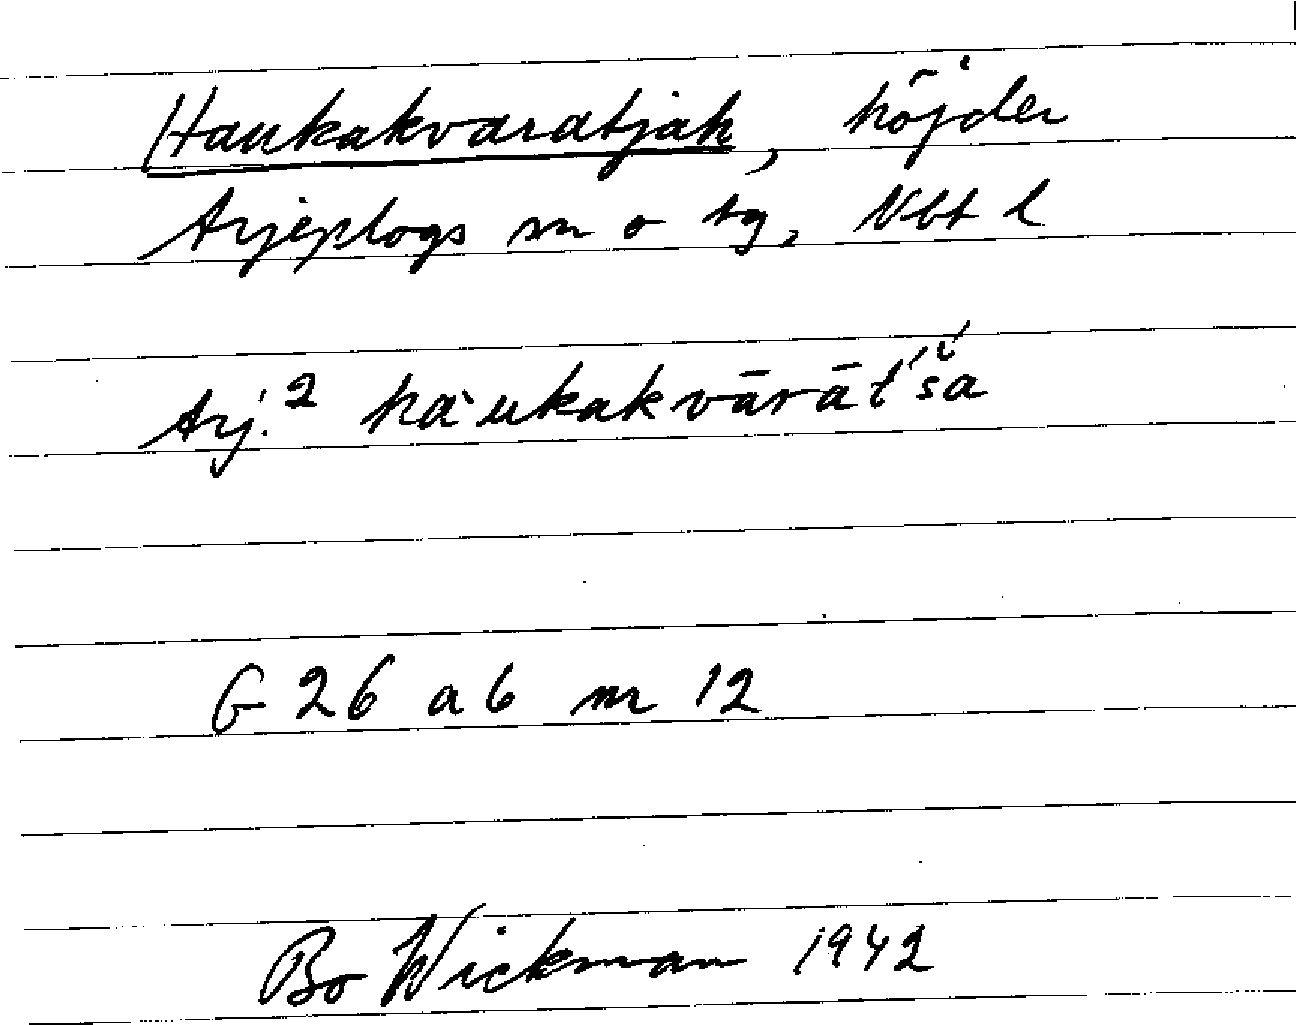 Haukakvaratjah, höjder
Arjeplogs sn o tg, Vbt l
Arj.² hàukakvārāt́'šá
G 26 a b nr 12
Bo Wickman 1942